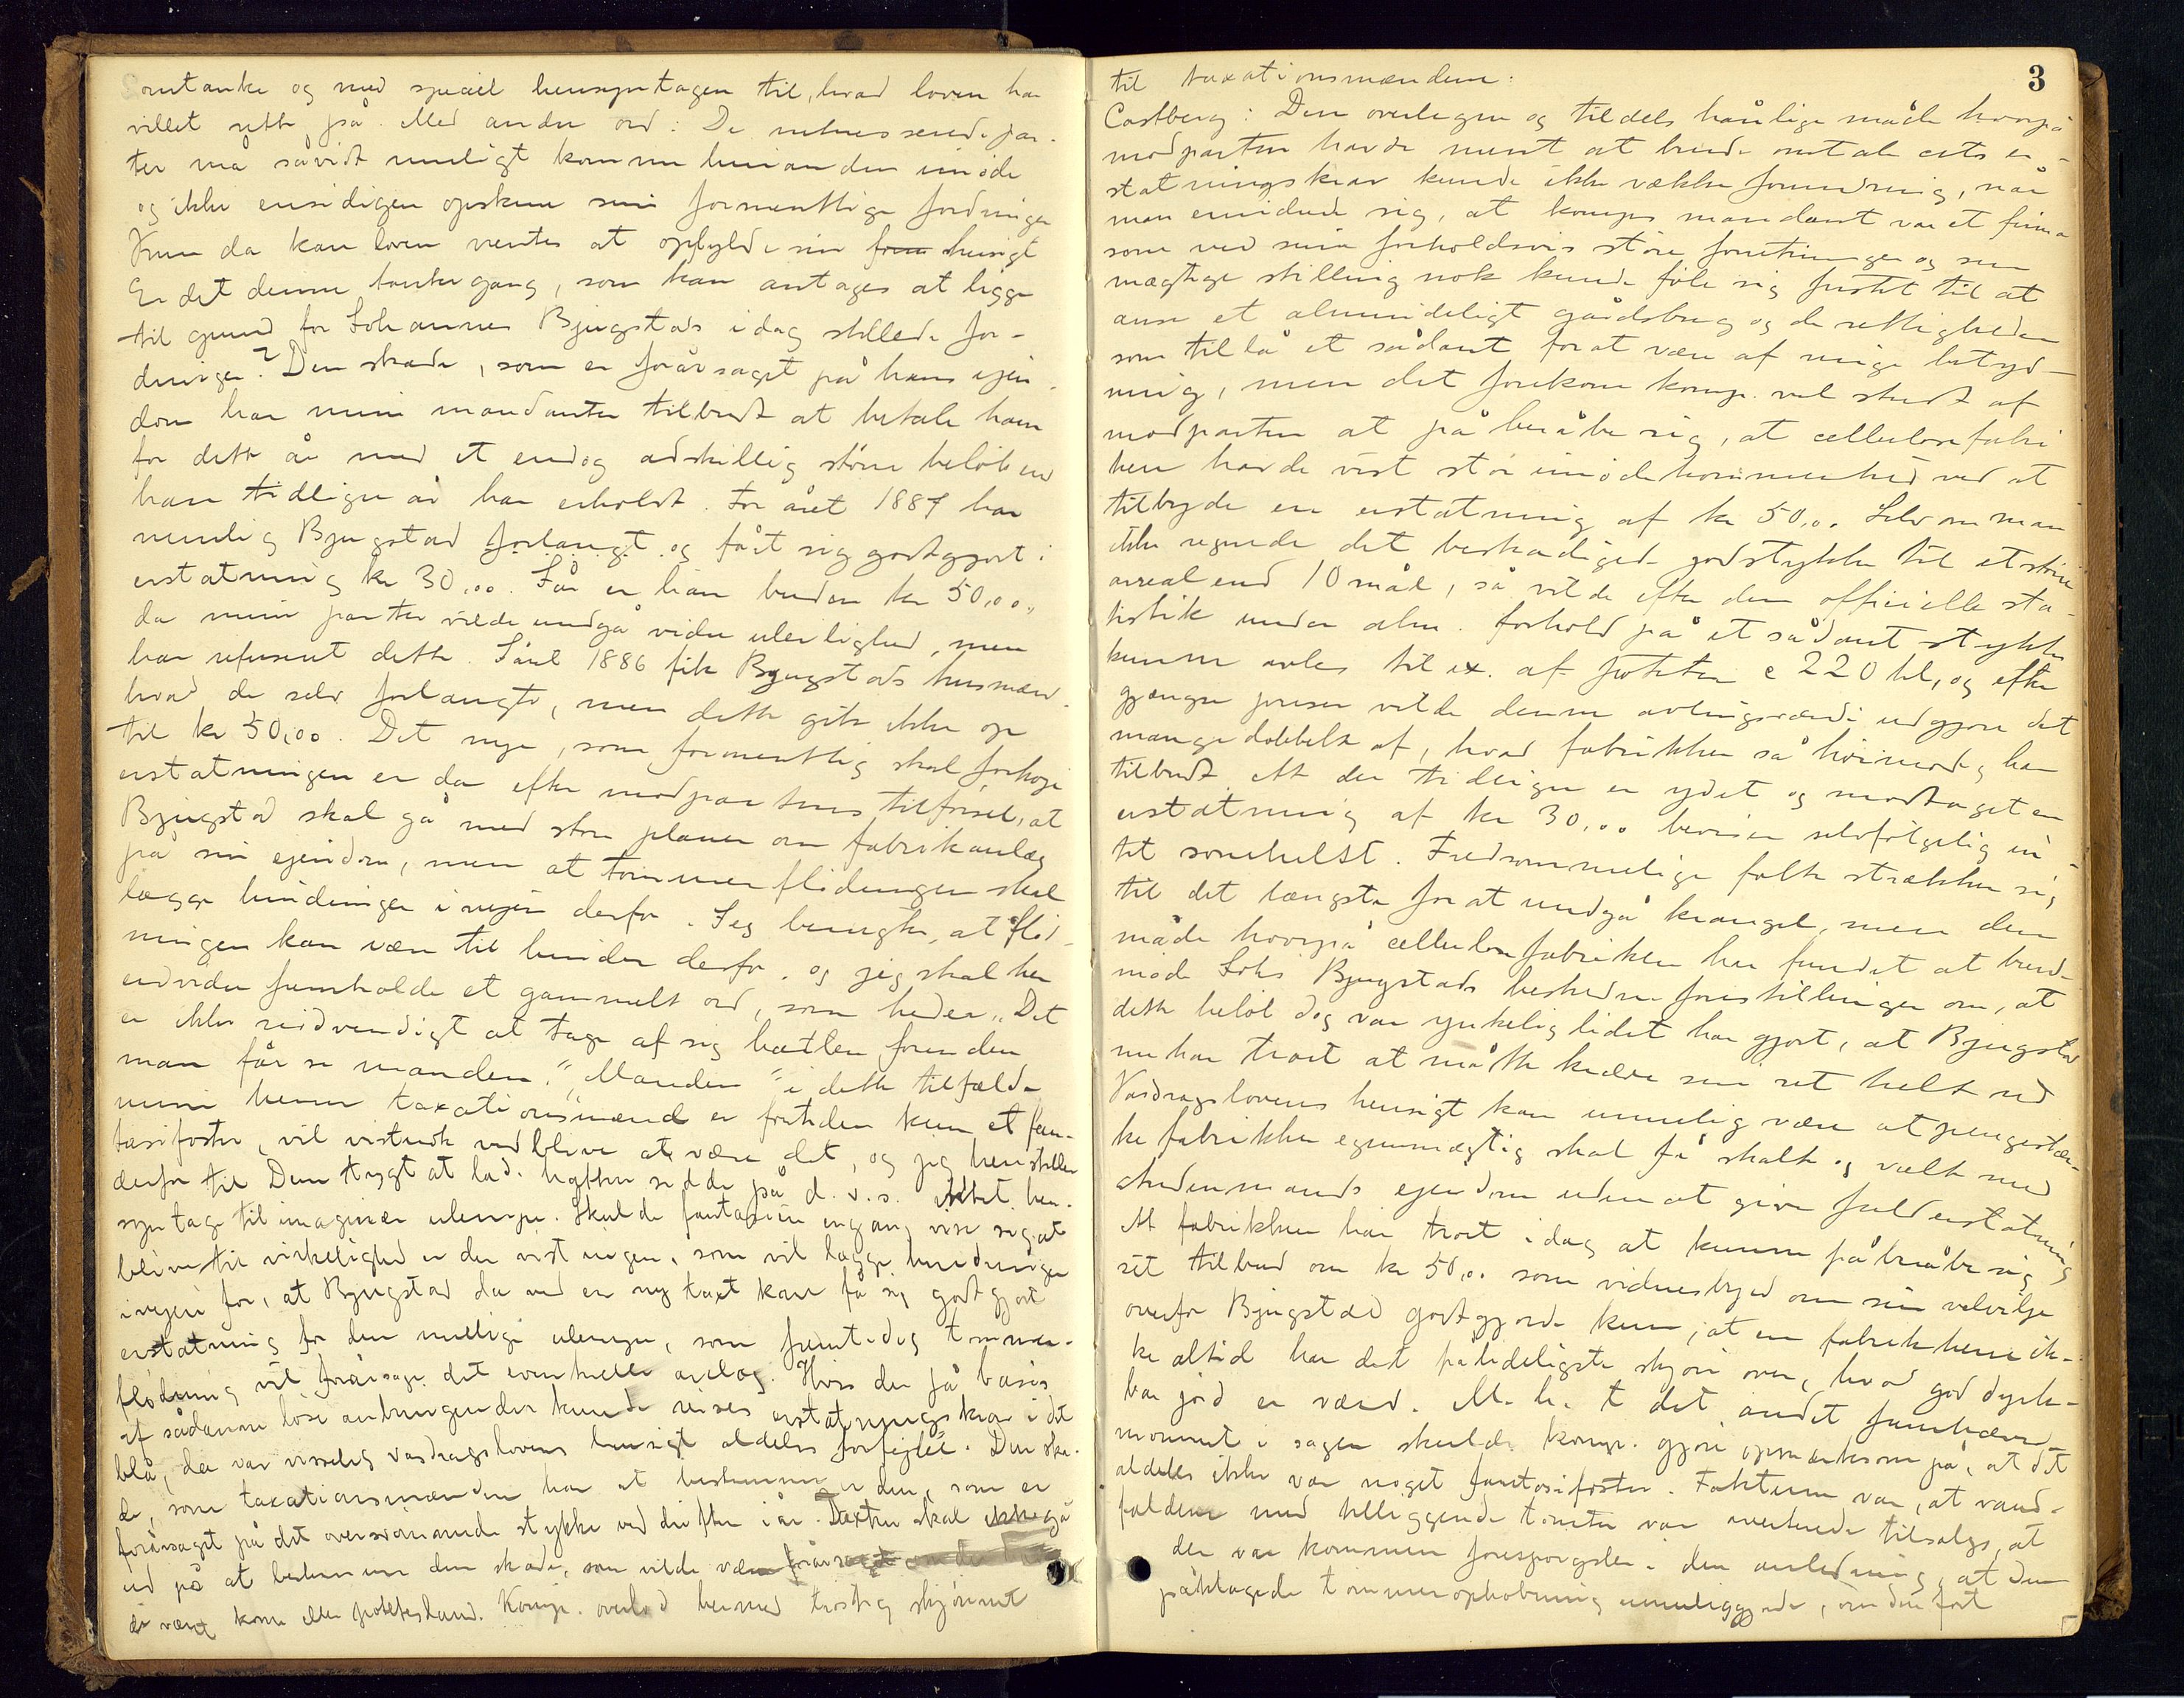 omtanke og med speciel hensyntagen til, hvad loven har
villet rette på. Med andre ord: De interesserede par-
ter må såvidt muligt komme hinanden imøde
og ikke ensidigen opskrue sine formentlige fordringer
Kun da kan loven ventes at opfylde sin hensigt
Er det denne tankegang, som kan antages at ligge
til grund for Johannes Bjugstads idag stillede for-
dringer? Den skade, som er forårsaget på hans ejen-
dom har mine mandanter tilbudt at betale ham
for dette år med et endog adskillig større beløb end
han tidligere år har erholdt. For året 1887 har
nemlig Bjugstad forlangt og fåt sig godtgjort i
erstatning kr 30,00. Iår er han buden kr 50,00,
da mine parter vilde undgå videre uleilighed, men
har refuseret dette. I året 1886 fik Bjugstads husmænd
hvad de selv forlangte, men dette gik ikke op
til kr 50,00. Det nye, som formentlig skal forhøje
erstatningen er da efter modpartens tilførsel, at
Bjugstad skal gå med store planer om fabrikanlæg
på sin ejendom, men at tømmerflødningen skal
lægge hindringer i vejen derfor. Jeg benegter, at flød-
ningen kan være til hinder derfor. og jeg skal her
endvidere fremholde et gammelt ord, som heder "Det
er ikke nødvendigt at tage af sig hatten, førenden
man får se manden." "Manden" i dette tilfælde
mine herrer taxationsmænd er fortiden kun et fan-
tasifoster, vil vistnok vedblive at være det, og jeg henstiller
derfor til Dem trygt at lade hatten sidde på d. v. s. intet hen-
syn tage til imaginær ulempe. Skulde fantasien engang vise sig at
blive til virkelighed er der vist ingen, som vil lægge hindringer
ivejen for, at Bjugstad da ved en ny taxt kan få sig godtgjort
erstatning for den mulige ulempe, som fremtidig tømmer-
flødning vil forårsage det eventuelle anlæg. Hvis der på basis
af sådanne løse anbringender kunde reises erstatningskrav i det
blå, da var visselig vasdragslovens hensigt aldeles forfejlet. Den ska-
de, som taxationsmændene har at bestemme er den, som er
forårsaget på det oversvømmede stykke ved driften iår. Taxten skal ikke gå
ud på at bestemme den skade, som vilde være forårsaget om der
været korn eller potetesland. Komp. overlod hermed trøstig skjønnet
3
til taxationsmændene.
Castberg: Den overlegne og tildels hånlige måde hvorpå
modparten havde ment at burde omtale cits er-
statningskrav kunde ikke vække forundring, når
man erindrede sig, at komps mandant var et firma
som ved sine forholdsvis store forretninger og sin
mægtige stilling nok kunde føle sig fristet til at
anse et almindeligt gårdsbrug og de rettigheder
som tillå et sådant for at være af ringe betyd-
ning, men det forekom komp. vel stærkt af
modparten at påberåbe sig, at cellulosefabri
ken havde vist stor imødekommenhed ved at
tilbyde en erstatning af kr 50,00. Selv om man
ikke regnede det beskadigede jordstykke til et større
areal end 10 mål, så vilde efter den officielle sta-
tistik under alm. forhold på et sådant stykke
kunne avles til ex. af poteter c 220 hl, og efter
gjængse priser vilde denne avlingsværdi udgjøre det
mangedobbelte af, hvad fabrikken så høimodig har
tilbudt. At der tidligere er ydet og modtaget en
erstatning af kr 30,00 beviser selvfølgelig in-
tet somhelst. Fredsommelige folk strækker sig
til det længste for at undgå krangel, men den
måde hvorpå cellulosefabriken har fundet at burde
møde Johs Bjugstads beskedne forestillinger om, at
dette beløb dog var ynkelig lidet har gjort, at Bjugstad
nu har troet at måtte kræve sin ret helt ud
Vasdragslovens hensigt kan umulig være at pengestær-
ke fabrikker egenmægtig skal få skalte og valte med
andenmands ejendom uden at give fuld erstatning
At fabrikken har troet idag at kunne påberåbe sig
sit tilbud om kr 50,00 som vidnesbyrd om sin velvilje
overfor Bjugstad godtgjorde kun, at en fabrikherre ik-
ke altid har det pålideligste skjøn over, hvad god dyrk-
bar jord er værd. M. h. t det andet fremhævede
moment i sagen skulde komp. gjøre opmærksom på, at det
aldeles ikke var noget fantasifoster. Faktum var, at vand-
faldene med tilliggende tomter var averterede tilsalgs, at
der var kommen forespørgsler i den anledning, at den
påklagede tømmerophobning umuliggjorde, om den fort